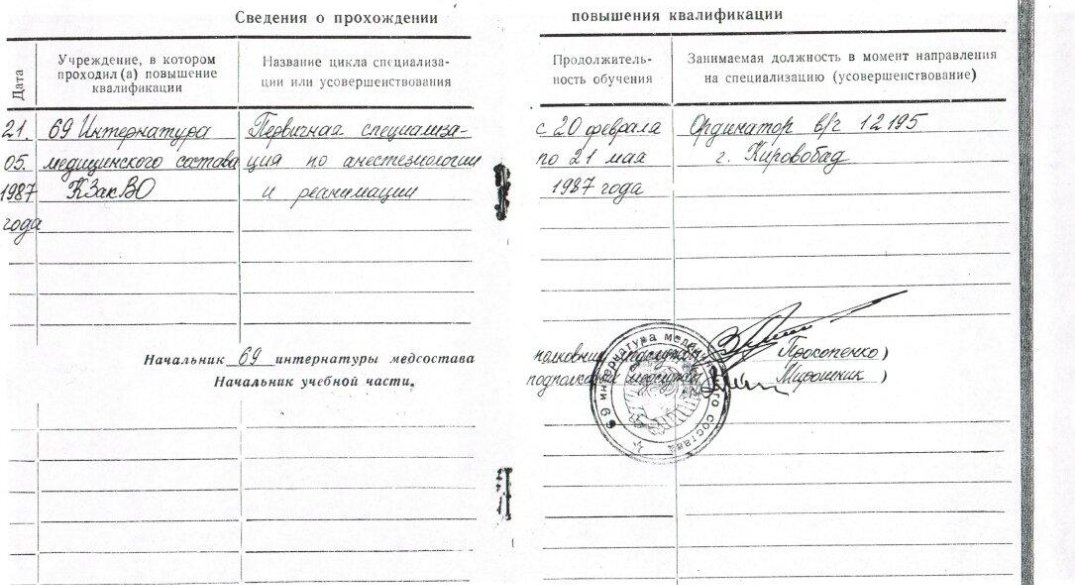 Сведения о прохождении повышения квалификации
Дата
Учреждение, в котором
проходил(а) повышение
квалификации
Название цикла специализа-
ции или усовершенствования
Продолжитель-
ность обучения
Занимаемая должность в момент направления
на специализацию (усовершенствование)
21. 69 Интернатура Первичная специализа- с 20 февраля Ординатор в/г 12195
05. медицинского состава ция по анестезиологии по 21 мая г. Кировобад
1987 КЗакВО и реанимации 1987 года
года
Начальник 69 интернатуры медсостава полковник Прокопенко)
Начальник учебной части. подполковник Мирошник)
69 интернатура медицинского состава